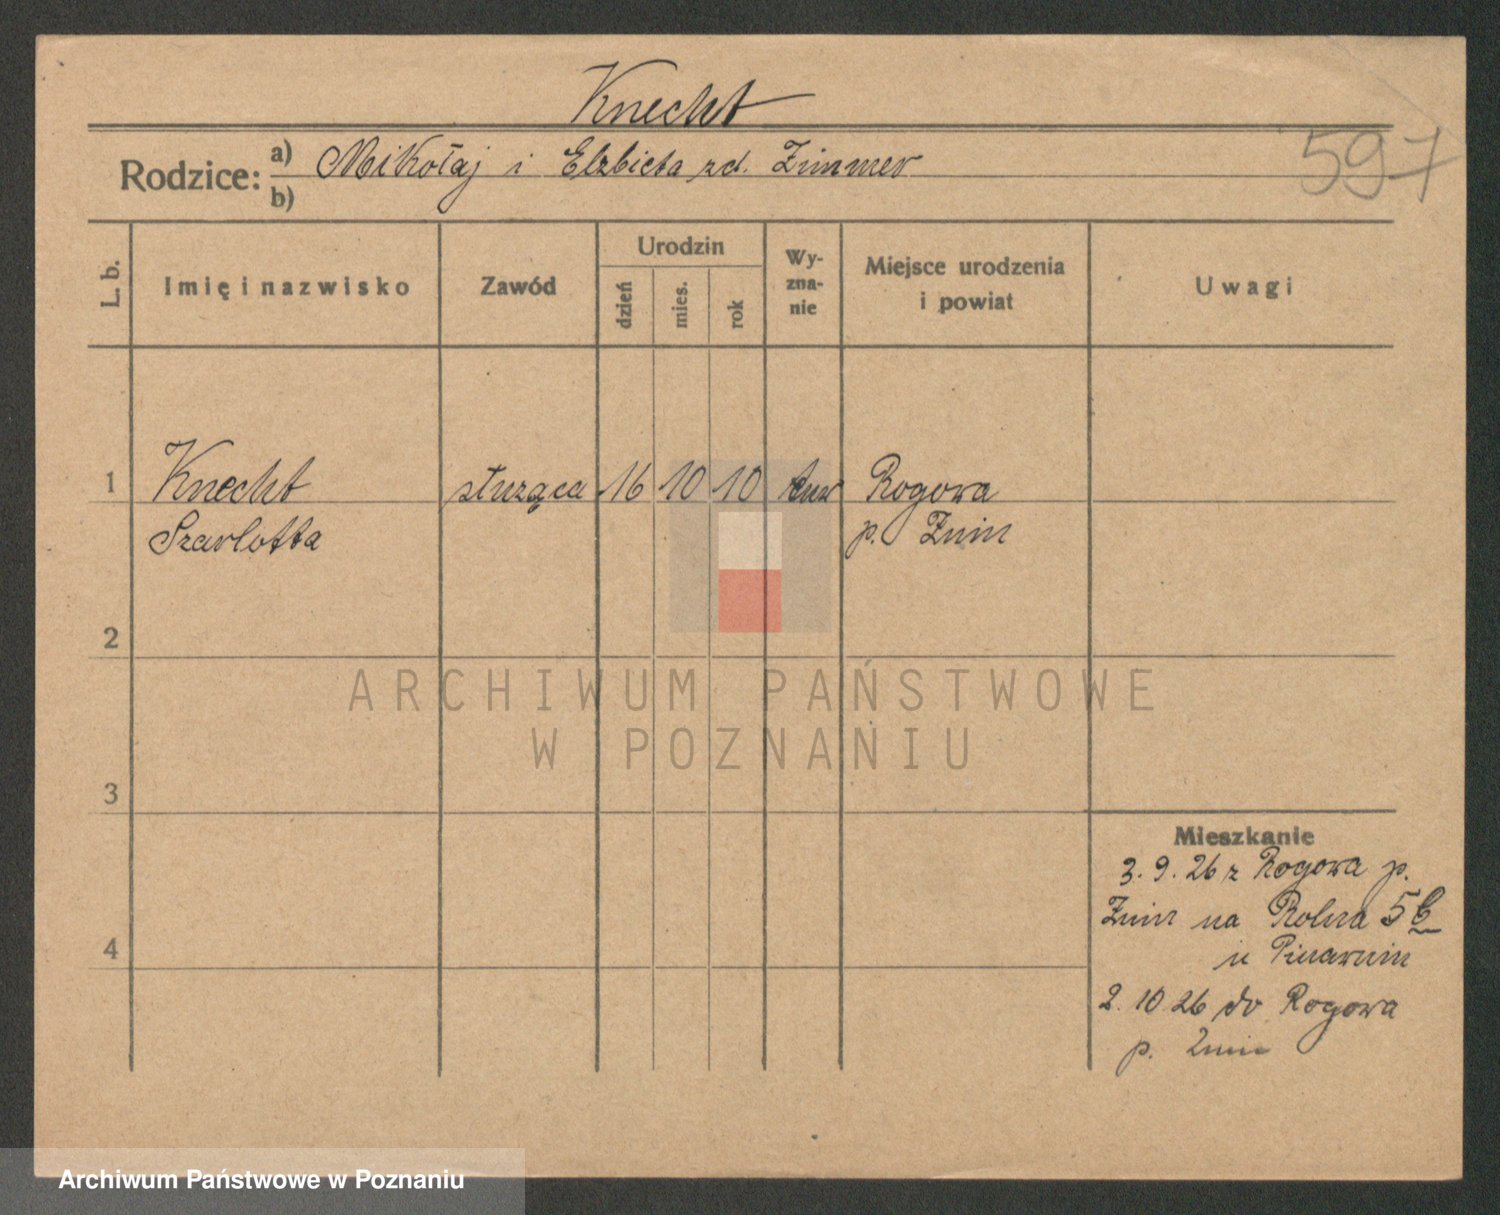 Knecht
597
Rodzice: a) Mikołaj i Elzbieta zd. Zimmer
b)
L. b.
Imię i nazwisko
Zawód
Urodzin
dzień
mies.
rok
Wy-
zna-
nie
Miejsce urodzenia
i powiat
Uwagi
1 Knecht służąca 16 10 10 Rogowa
Szarlotta p. Żnin
2
ARCHIWUM PAŃSTWOWE
W POZNANIU
3
Mieszkanie
3. 9. 26 z Rogowa p.
Żnin na Rolna 5
4
u
2. 10 26 do Rogowa
p. Żnin
Archiwum Państwowe w Poznaniu